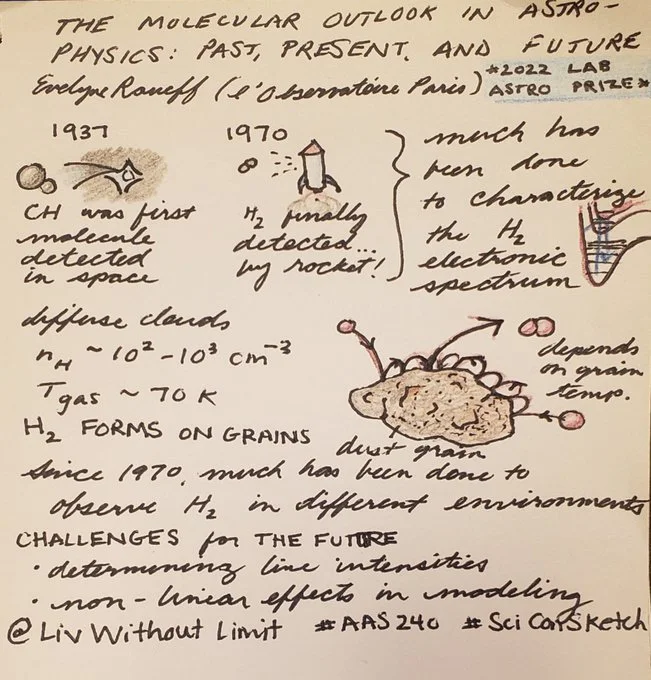 THE MOLECULAR OUTLOOK IN ASTRO-
PHYSICS: PAST, PRESENT, AND FUTURE
Evelyne Roueff (l'Observatoire Paris)
*2022 LAB
ASTRO PRIZE*
1937
CH was first
molecule
detected
in space
1970
H₂ finally
detected...
by rocket!
much has
been done
to characterize
the H₂
electronic
spectrum
diffuse clouds
nH ~ 10² - 10³ cm⁻³
Tgas ~ 70 K
H₂ FORMS ON GRAINS
depends
on grain
temp.
dust grain
Since 1970, much has been done to
observe H₂ in different environments
CHALLENGES for THE FUTURE
· determining line intensities
· non-linear effects in modeling
@LivWithoutLimit #AAS240 #SciConSketch